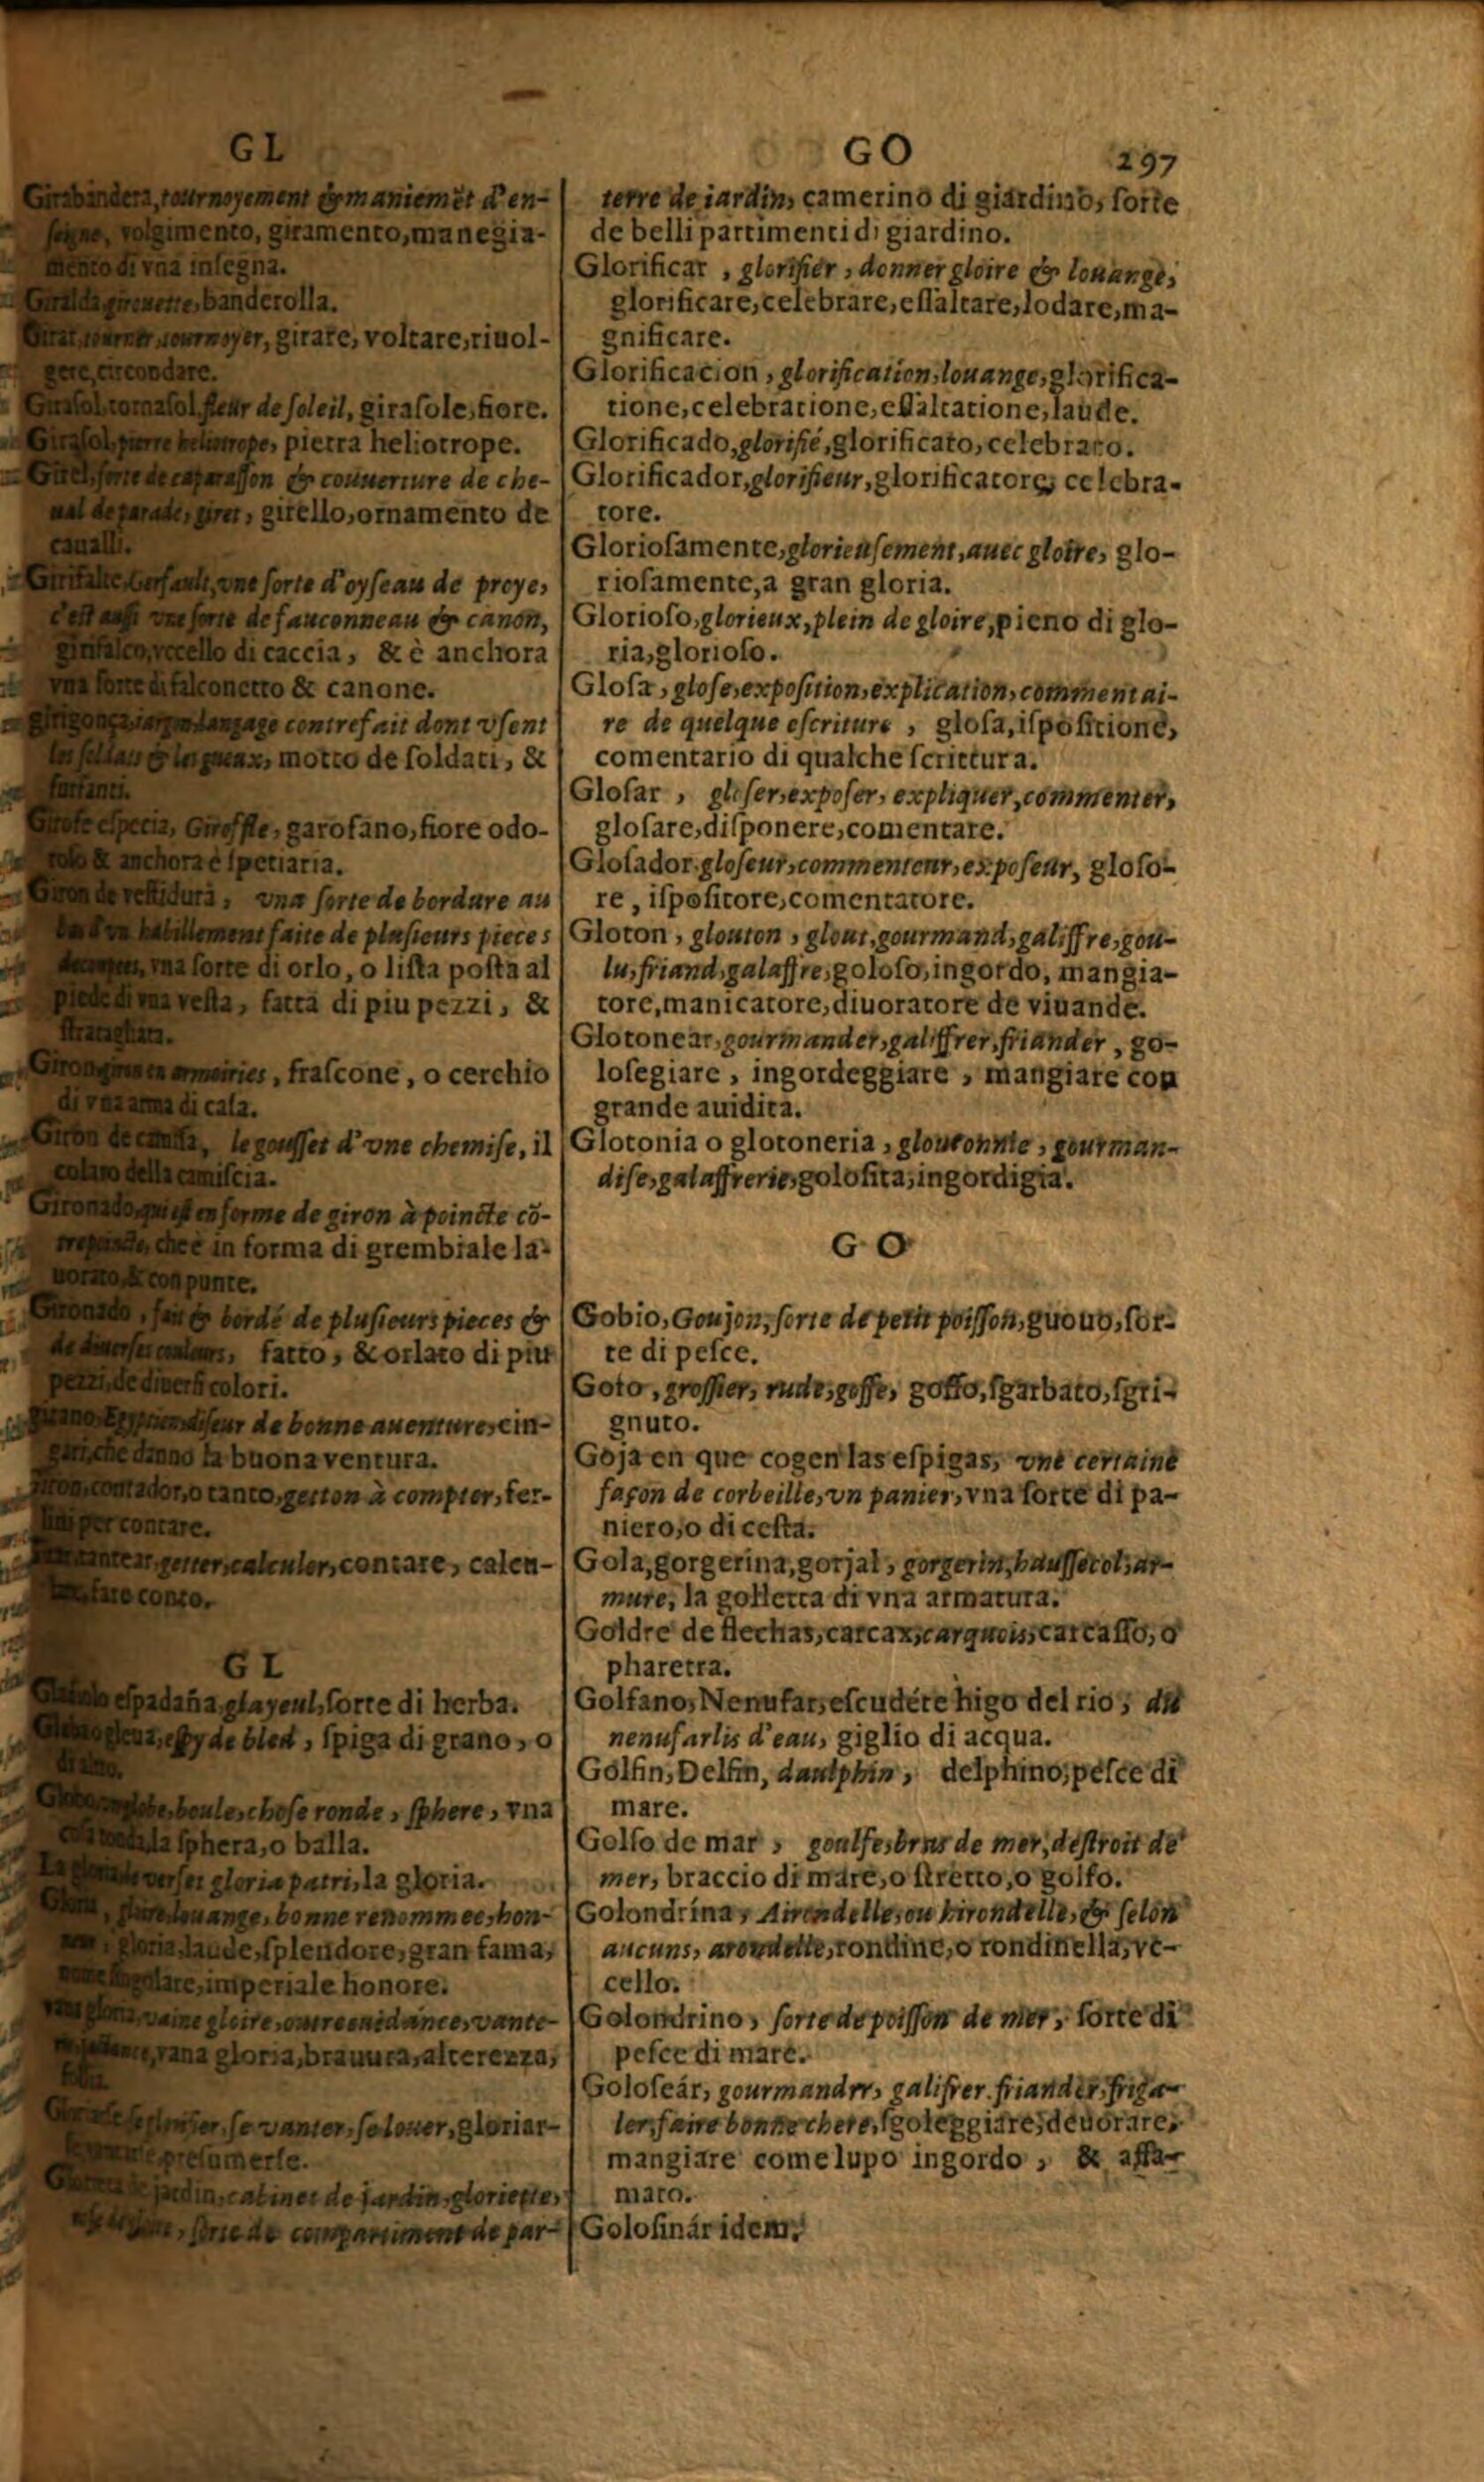 GL
GO
297
Girabandera, tournoyement & maniemēt d'en-
ſeigne, volgimento, giramento, manegia-
mento di vna inſegna.
Giralda girouette, banderolla.
Girar, tourner, tournoyer, girare, voltare, riuol-
gere, circondare.
Giraſol, tornaſol fleur de ſoleil, giraſole, fiore.
Giraſol, pierre heliotrope, pietra heliotrope.
Girel, ſorte de caparaſſon & couuerture de che-
ual de parade, giret, girello, ornamento de
caualli.
Girifalte, Gerfault, vne ſorte d'oyſeau de proye,
c'eſt auſſi vne ſorte de fauconneau & canon,
girifalco, vccello di caccia, & è anchora
vna ſorte di falconetto & canone.
girigonça, iargon langage contrefait dont vſent
les ſoldats & les gueux, motto de ſoldati, &
furfanti.
Girofe eſpecia, Giroffle, garofano, fiore odo-
roſo & anchora è ſpetiaria.
Giron de veſtidura, vna ſorte de bordure au
bas d'vn habillement faite de pluſieurs pieces
decoupees, vna ſorte di orlo, o liſta poſta al
piede di vna veſta, fatta di piu pezzi, &
ſtratagliata.
Giron giron en armoiries, fraſcone, o cerchio
di vna arma di caſa.
Giron de camiſa, le gouſſet d'vne chemiſe, il
colaro della camiſcia.
Gironado, qui eſt en forme de giron à poincte cō-
che è in forma di grembiale la-
uorato, & con punte.
Gironado, fait & bordé de pluſieurs pieces &
de diuerſes couleurs, fatto, & orlato di piu
pezzi, de diuerſi colori.
Gitano Egyptien diſeur de bonne auenture, cin-
gari, che danno la buona ventura.
contador, o tanto, getton à compter, fer-
lini per contare.
tantear, getter, calculer, contare, calcu-
lare, fare conto.
GL
eſpadaña, glayeul, ſorte di herba.
eſpy de bled, ſpiga di grano, o
di altro.
globe, boule, choſe ronde, ſphere, vna
coſa tonda, la ſphera, o balla.
La gloria de verſet gloria patri, la gloria.
Gloria, gloire, louange, bonne renommee, hon-
neur, gloria, laude, ſplendore, gran fama,
nome ſingolare, imperiale honore.
vana gloria, vaine gloire, outrecuidance, vante-
vana gloria, brauura, alterezza,
ſe glorifier, ſe vanter, ſe louer, gloriar-
preſumerſe.
jardin, cabinet de jardin, gloriette,
ſorte de compartiment de par-
terre de iardin, camerino di giardino, ſorte
de belli partimenti di giardino.
Glorificar, glorifier, donner gloire & louange,
glorificare, celebrare, eſſaltare, lodare, ma-
gnificare.
Glorificacion, glorification, louange, glorifica-
tione, celebratione, eſſaltatione, laude.
Glorificado, glorifié, glorificato, celebrato.
Glorificador, glorifieur, glorificatore, celebra-
tore.
Glorioſamente, glorieuſement, auec gloire, glo-
rioſamente, a gran gloria.
Glorioſo, glorieux, plein de gloire, pieno di glo-
ria, glorioſo.
Gloſa, gloſe, expoſition, explication, commentai-
re de quelque eſcriture, gloſa, iſpoſitione,
comentario di qualche ſcrittura.
Gloſar, gloſer, expoſer, expliquer, commenter,
gloſare, diſponere, comentare.
Gloſador gloſeur, commenteur, expoſeur, gloſo-
re, iſpoſitore, comentatore.
Gloton, glouton, glout, gourmand, galiffre, gou-
lu, friand, galaffre, goloſo, ingordo, mangia-
tore, manicatore, diuoratore de viuande.
Glotonear, gourmander, galiffrer, friander, go-
loſegiare, ingordeggiare, mangiare con
grande auidita.
Glotonia o glotoneria, gloutonnie, gourman-
diſe, galaffrerie, goloſita, ingordigia.
GO
Gobio, Goujon, ſorte de petit poiſſon, guouo, ſor-
te di peſce.
Goto, groſſier, rude, goffe, goffo, ſgarbato, ſgri-
gnuto.
Goja en que cogen las eſpigas, vne certaine
façon de corbeille, vn panier, vna ſorte di pa-
niero, o di ceſta.
Gola, gorgerina, gorjal, gorgerin, hauſſecol, ar-
mure, la golletta di vna armatura.
Goldre de flechas, carcax, carquois, carcaſſo, o
pharetra.
Golfano, Nenufar, eſcudete higo del rio, du
nenufar lis d'eau, giglio di acqua.
Golfin, Delfin, daulphin, delphino, peſce di
mare.
Golfo de mar, goulfe, bras de mer, deſtroit de
mer, braccio di mare, o ſtretto, o golfo.
Golondrína, Airondelle, ou hirondelle, & ſelon
aucuns, arondelle, rondine, o rondinella, vc-
cello.
Golondrino, ſorte de poiſſon de mer, ſorte di
peſce di mare.
Goloſeár, gourmandrr, galifrer friander, friga-
ler, faire bonne chere, ſgoleggiare, deuorare,
mangiare come lupo ingordo, & affa-
mato.
Goloſinár idem.